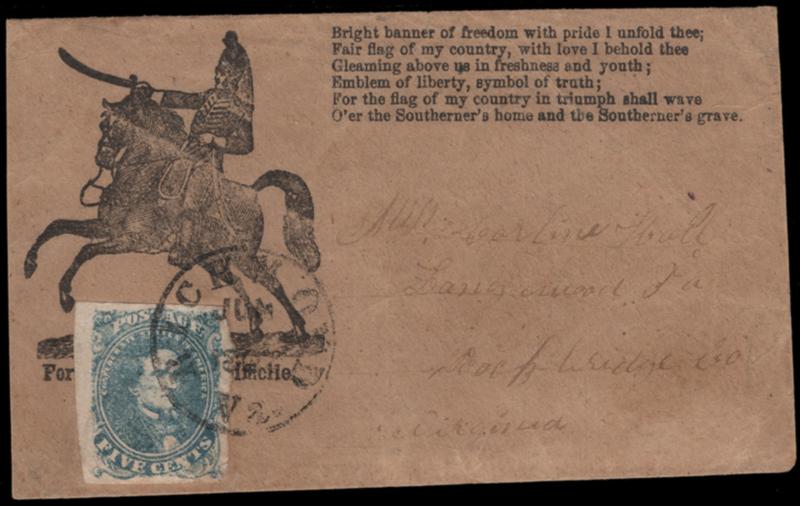 Bright banner of freedom with pride I unfold thee;
Fair flag of my country, with love I behold thee
Gleaming above us in freshness and youth;
Emblem of liberty, symbol of truth;
For the flag of my country in triumph shall wave
O'er the Southerner's home and the Southerner's grave.
Miss
Va
Rockbridge Co
Virginia
For
POSTAGE
CONFEDERATE STATES OF AMERICA
FIVE CENTS